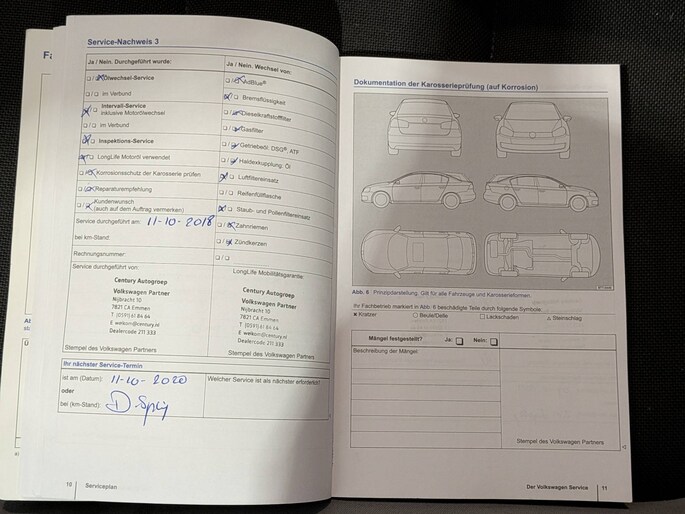 Service-Nachweis 3
Ja / Nein. Durchgeführt wurde:
Ölwechsel-Service
im Verbund
Intervall-Service
inklusive Motorölwechsel
im Verbund
Inspektions-Service
LongLife Motoröl verwendet
Korrosionsschutz der Karosserie prüfen
Reparaturempfehlung
Kundenwunsch
(auch auf dem Auftrag vermerken)
Service durchgeführt am: 11-10-2018
bei km-Stand:
Rechnungsnummer:
Service durchgeführt von:
Century Autogroep
Volkswagen Partner
Nijbracht 10
7821 CA Emmen
T (0591) 61 84 64
E welkom@century.nl
Dealercode 211 333
Stempel des Volkswagen Partners
Ja / Nein. Wechsel von:
AdBlue®
Bremsflüssigkeit
Dieselkraftstofffilter
Gasfilter
Getriebeöl: DSG®, ATF
Haldexkupplung: Öl
Luftfiltereinsatz
Reifenfüllflasche
Staub- und Pollenfiltereinsatz
Zahnriemen
Zündkerzen
LongLife Mobilitätsgarantie:
Century Autogroep
Volkswagen Partner
Nijbracht 10
7821 CA Emmen
T (0591) 61 84 64
E welkom@century.nl
Dealercode 211 333
Stempel des Volkswagen Partners
Ihr nächster Service-Termin
ist am (Datum): 11-10-2020
oder
bei (km-Stand):
Welcher Service ist als nächster erforderlich?
10 Serviceplan
Dokumentation der Karosserieprüfung (auf Korrosion)
Abb. 6 Prinzipdarstellung. Gilt für alle Fahrzeuge und Karosserieformen.
Ihr Fachbetrieb markiert in Abb. 6 beschädigte Teile durch folgende Symbole:
Kratzer Beule/Delle Lackschaden Steinschlag
Mängel festgestellt? Ja: Nein:
Beschreibung der Mängel:
Stempel des Volkswagen Partners
Der Volkswagen Service 11